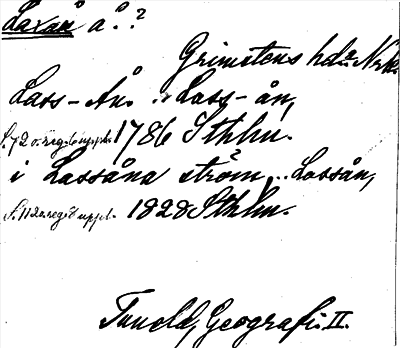 Laxån å.?
Grimstens hd. Nrk.
Lass-Ån. .. Lass-ån,
S. 72 o. reg. 6 uppl. 1786 Sthlm.
i Lassåna ström .. Lassån,
S. 112 o. reg. 8 uppl. 1828 Sthlm.
Tuneld, Geografi. II.